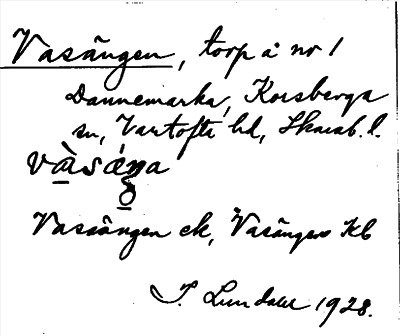 Vasängen, torp å nr 1
Dannemarka, Korsberga
sn, Vartofta hd, Skarab. l.
Vasaängen ek, Vasängen Kb
J. Lundahl 1928.